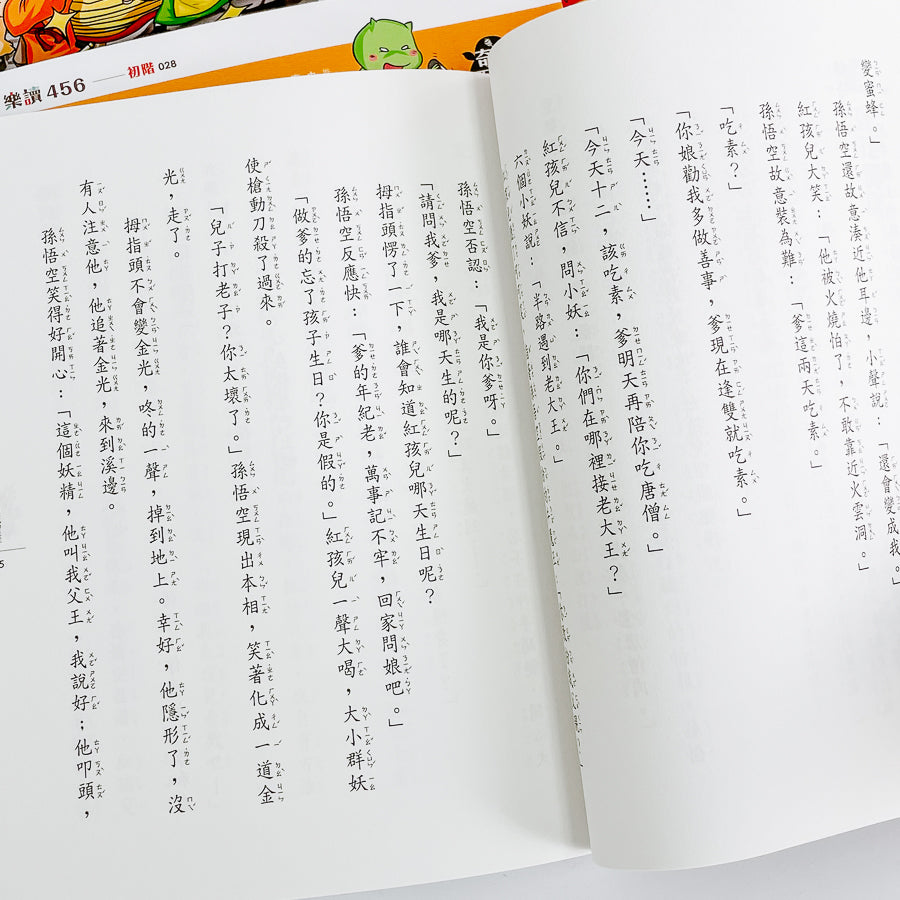 樂讀456
初階 028
變蜜蜂。」
孫悟空還故意湊近他耳邊，小聲說：「還會變成我。」
紅孩兒大笑：「他被火燒怕了，不敢靠近火雲洞。」
孫悟空故意裝為難：「爹這兩天吃素。」
「吃素？」
「你娘勸我多做善事，爹現在逢雙就吃素。」
「今天……」
「今天十二，該吃素，爹明天再陪你吃唐僧。」
紅孩兒不信，問小妖：「你們在哪裡接老大王？」
六個小妖說：「半路遇到老大王。」
孫悟空否認：「我是你爹呀。」
「請問我爹，我是哪天生的呢？」
拇指頭愣了一下，誰會知道紅孩兒哪天生日呢？
孫悟空反應快：「爹的年紀老，萬事記不牢，回家問娘吧。」
「做爹的忘了孩子生日？你是假的。」紅孩兒一聲大喝，大小群妖
使槍動刀殺了過來。
「兒子打老子？你太壞了。」孫悟空現出本相，笑著化成一道金
光，走了。
拇指頭不會變金光，咚的一聲，掉到地上。幸好，他隱形了，沒
有人注意他，他追著金光，來到溪邊。
孫悟空笑得好開心：「這個妖精，他叫我父王，我說好；他叩頭，